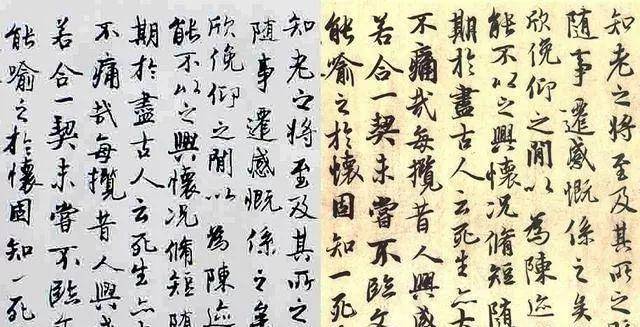 知老之将至及其所之
随事遷感慨係之矣
欣俛仰之閒以為陳迹
能不以之興懷況脩短随
期於盡古人云死生亦
不痛哉每攬昔人興
若合一契未嘗不臨文
能喻之於懷固知一死
知老之将至及其所之
随事遷感慨係之矣
欣俛仰之閒以為陳迹
能不以之興懷況脩短随
期於盡古人云死生亦大
不痛哉每攬昔人興感
若合一契未嘗不臨文
能喻之於懷固知一死